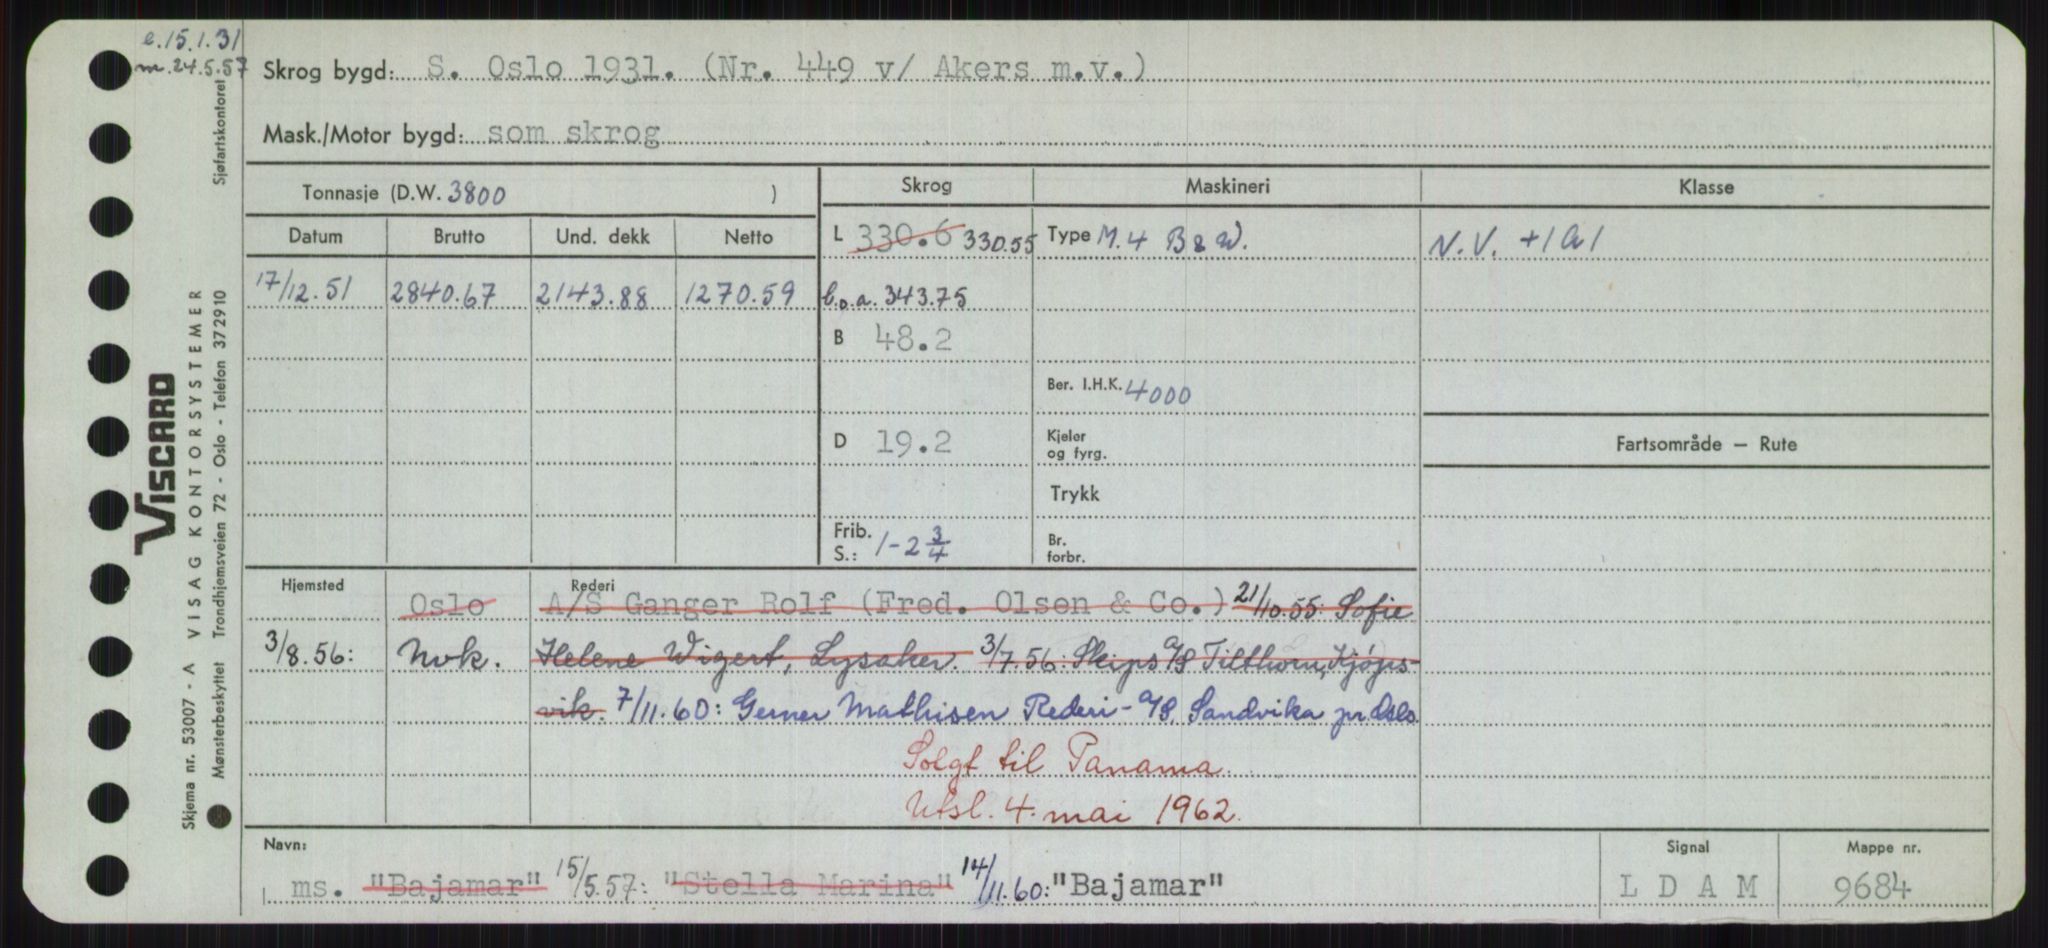 e.15.1.31
m.24.5.57
Skrog bygd: S. Oslo 1931. (Nr. 449 v/ Akers m.v.)
Mask./Motor bygd: som skrog
Tonnasje (D.W. 3800 )
Skrog
Maskineri
Klasse
Datum Brutto Und. dekk Netto
L 330.6 330.55
Type M. 4 B & W.
N.V. +1A1
17/12.51 2840.67 2143.88 1270.59
l.o.a. 343.75
B 48.2
Ber. I.H.K. 4000
D 19.2
Kjeler
og fyrg.
Fartsområde — Rute
Trykk
Frib.
S.: 1-2 3/4
Br.
forbr.
Hjemsted
Rederi
Oslo A/S Ganger Rolf (Fred. Olsen & Co.) 21/10.55: Sofie
3/8.56: Nvk. Helene Wigert, Lysaker. 3/7.56: Skips A/S Tilthorn, Kjøpsvik.
7/11.60: Gerner Mathisen Rederi - A/S, Sandvika pr. Oslo.
Solgt til Panama.
Utsl. 4. mai 1962.
Navn:
ms. "Bajamar" 15/5.57: "Stella Marina" 14/11.60: "Bajamar"
Signal
L D A M
Mappe nr.
9684
VISCARD
VISAG KONTORSYSTEMER
Skjema nr. 53007 - A
Mønsterbeskyttet Trondhjemsveien 72 - Oslo - Telefon 372910
Sjøfartskontoret